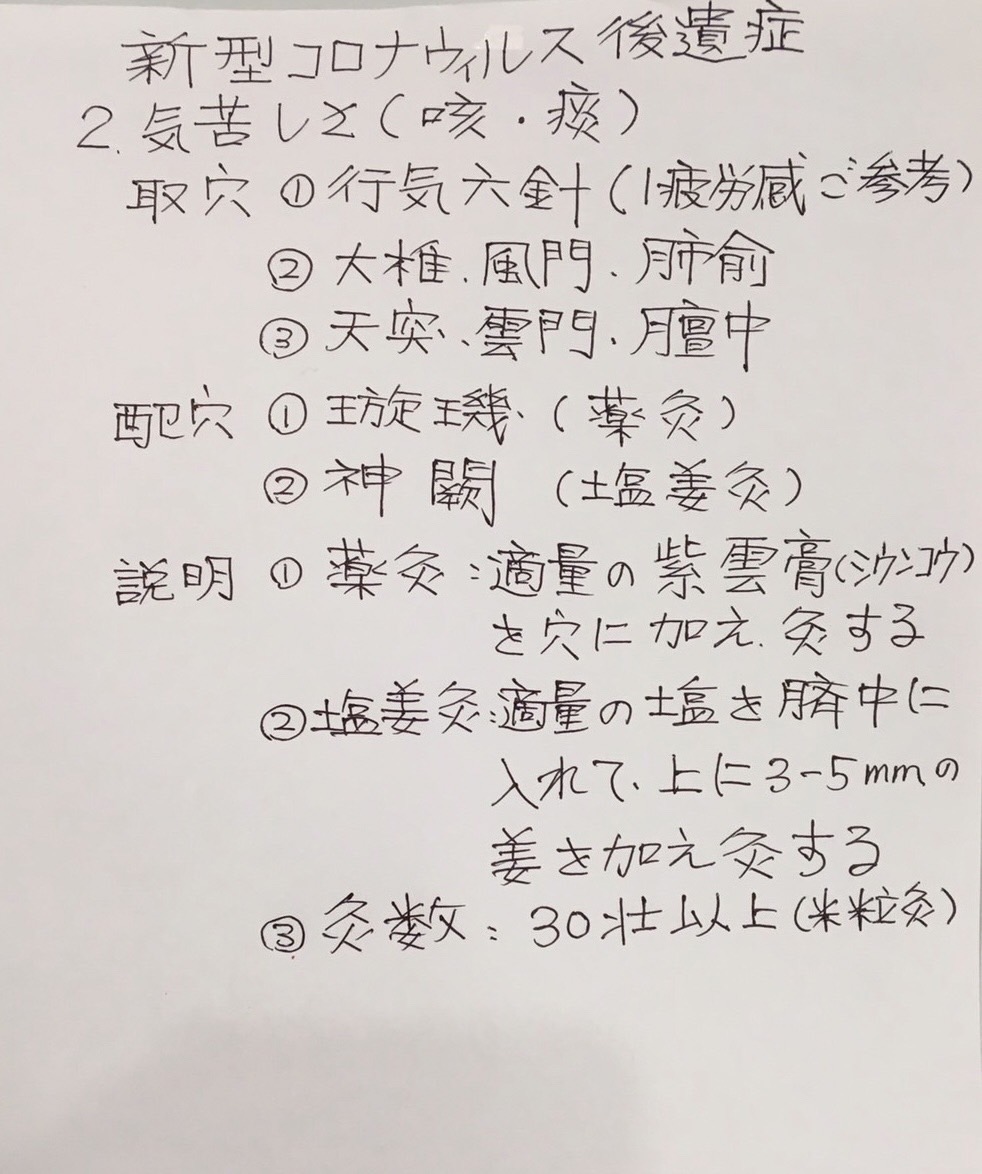 新型コロナウィルス後遺症
2. 気苦しと(咳・痰)
取穴 ① 行気六針(1疲労感ご参考)
② 大椎、風門、肺俞
③ 天突、雲門、膻中
配穴 ① 璇璣、(薬灸)
② 神闕 (塩姜灸)
説明 ① 薬灸:適量の紫雲膏(シウンコウ)
を穴に加え、灸する
②塩姜灸:適量の塩を臍中に
入れて、上に3-5mmの
姜を加え灸する
③ 灸数:30壮以上(米粒灸)